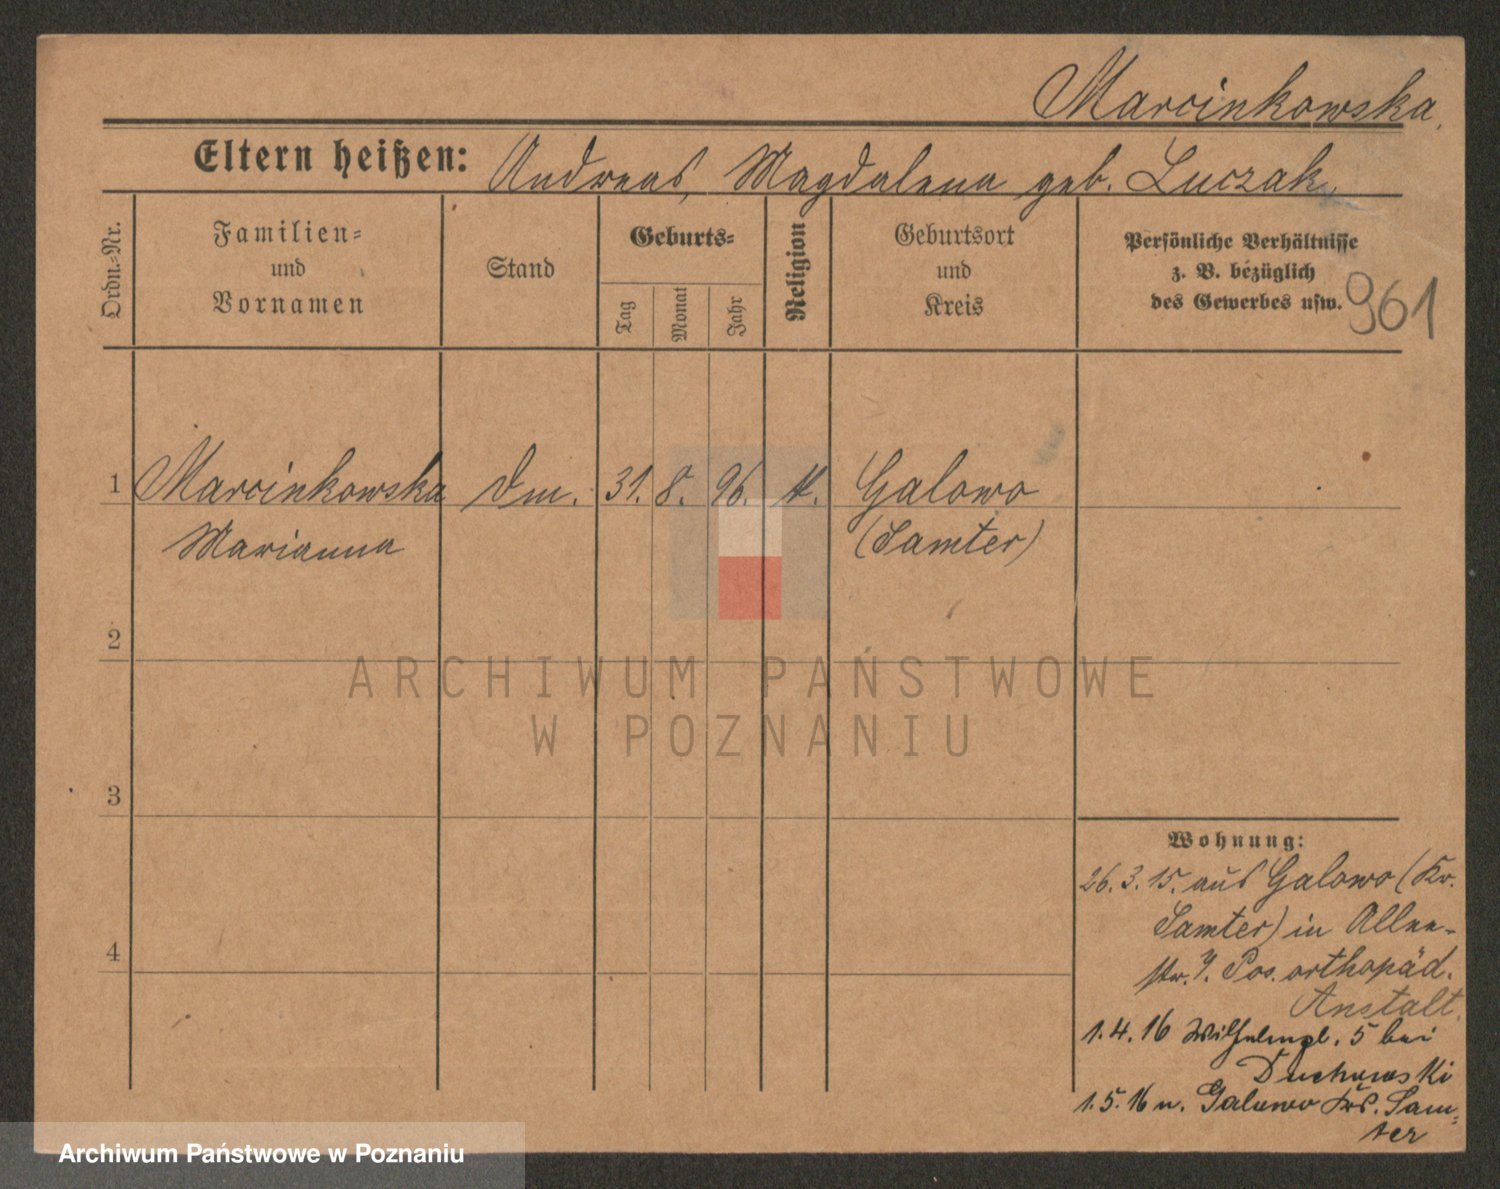 Marcinkowska.
Eltern heißen: Andreas, Magdalena geb. Luczak.
Ordn.-Nr.
Familien- und Vornamen
Stand
Geburts-
Tag
Monat
Jahr
Religion
Geburtsort und Kreis
Persönliche Verhältnisse
z. B. bezüglich
des Gewerbes usw.
961
1 Marcinkowska Dm. 31. 8. 96. k. Galowo
Marianna (Samter)
2
3
4
ARCHIWUM PAŃSTWOWE
W POZNANIU
Wohnung:
26. 3. 15. aus Galowo (Kr.
Samter) in Allee-
str. Pos. orthopäd.
Anstalt.
1. 4. 16 Wilhelmpl. 5 bei
Duchowski
1. 5. 16 n. Galowo Krs. Sam-
ter
Archiwum Państwowe w Poznaniu